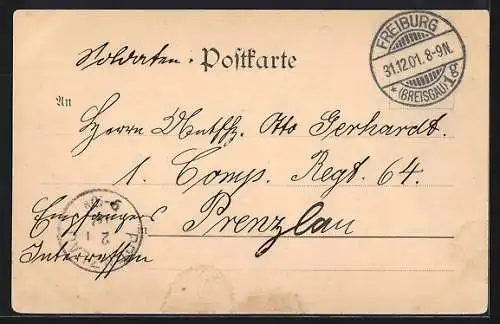 Soldaten. Postkarte
FREIBURG
31.12.01. 8-9 N.
* (BREISGAU) 1g
An
Herrn Otto Gerhardt.
1. Comp. Regt. 64.
Empfängers
Prenzlau
Interessen